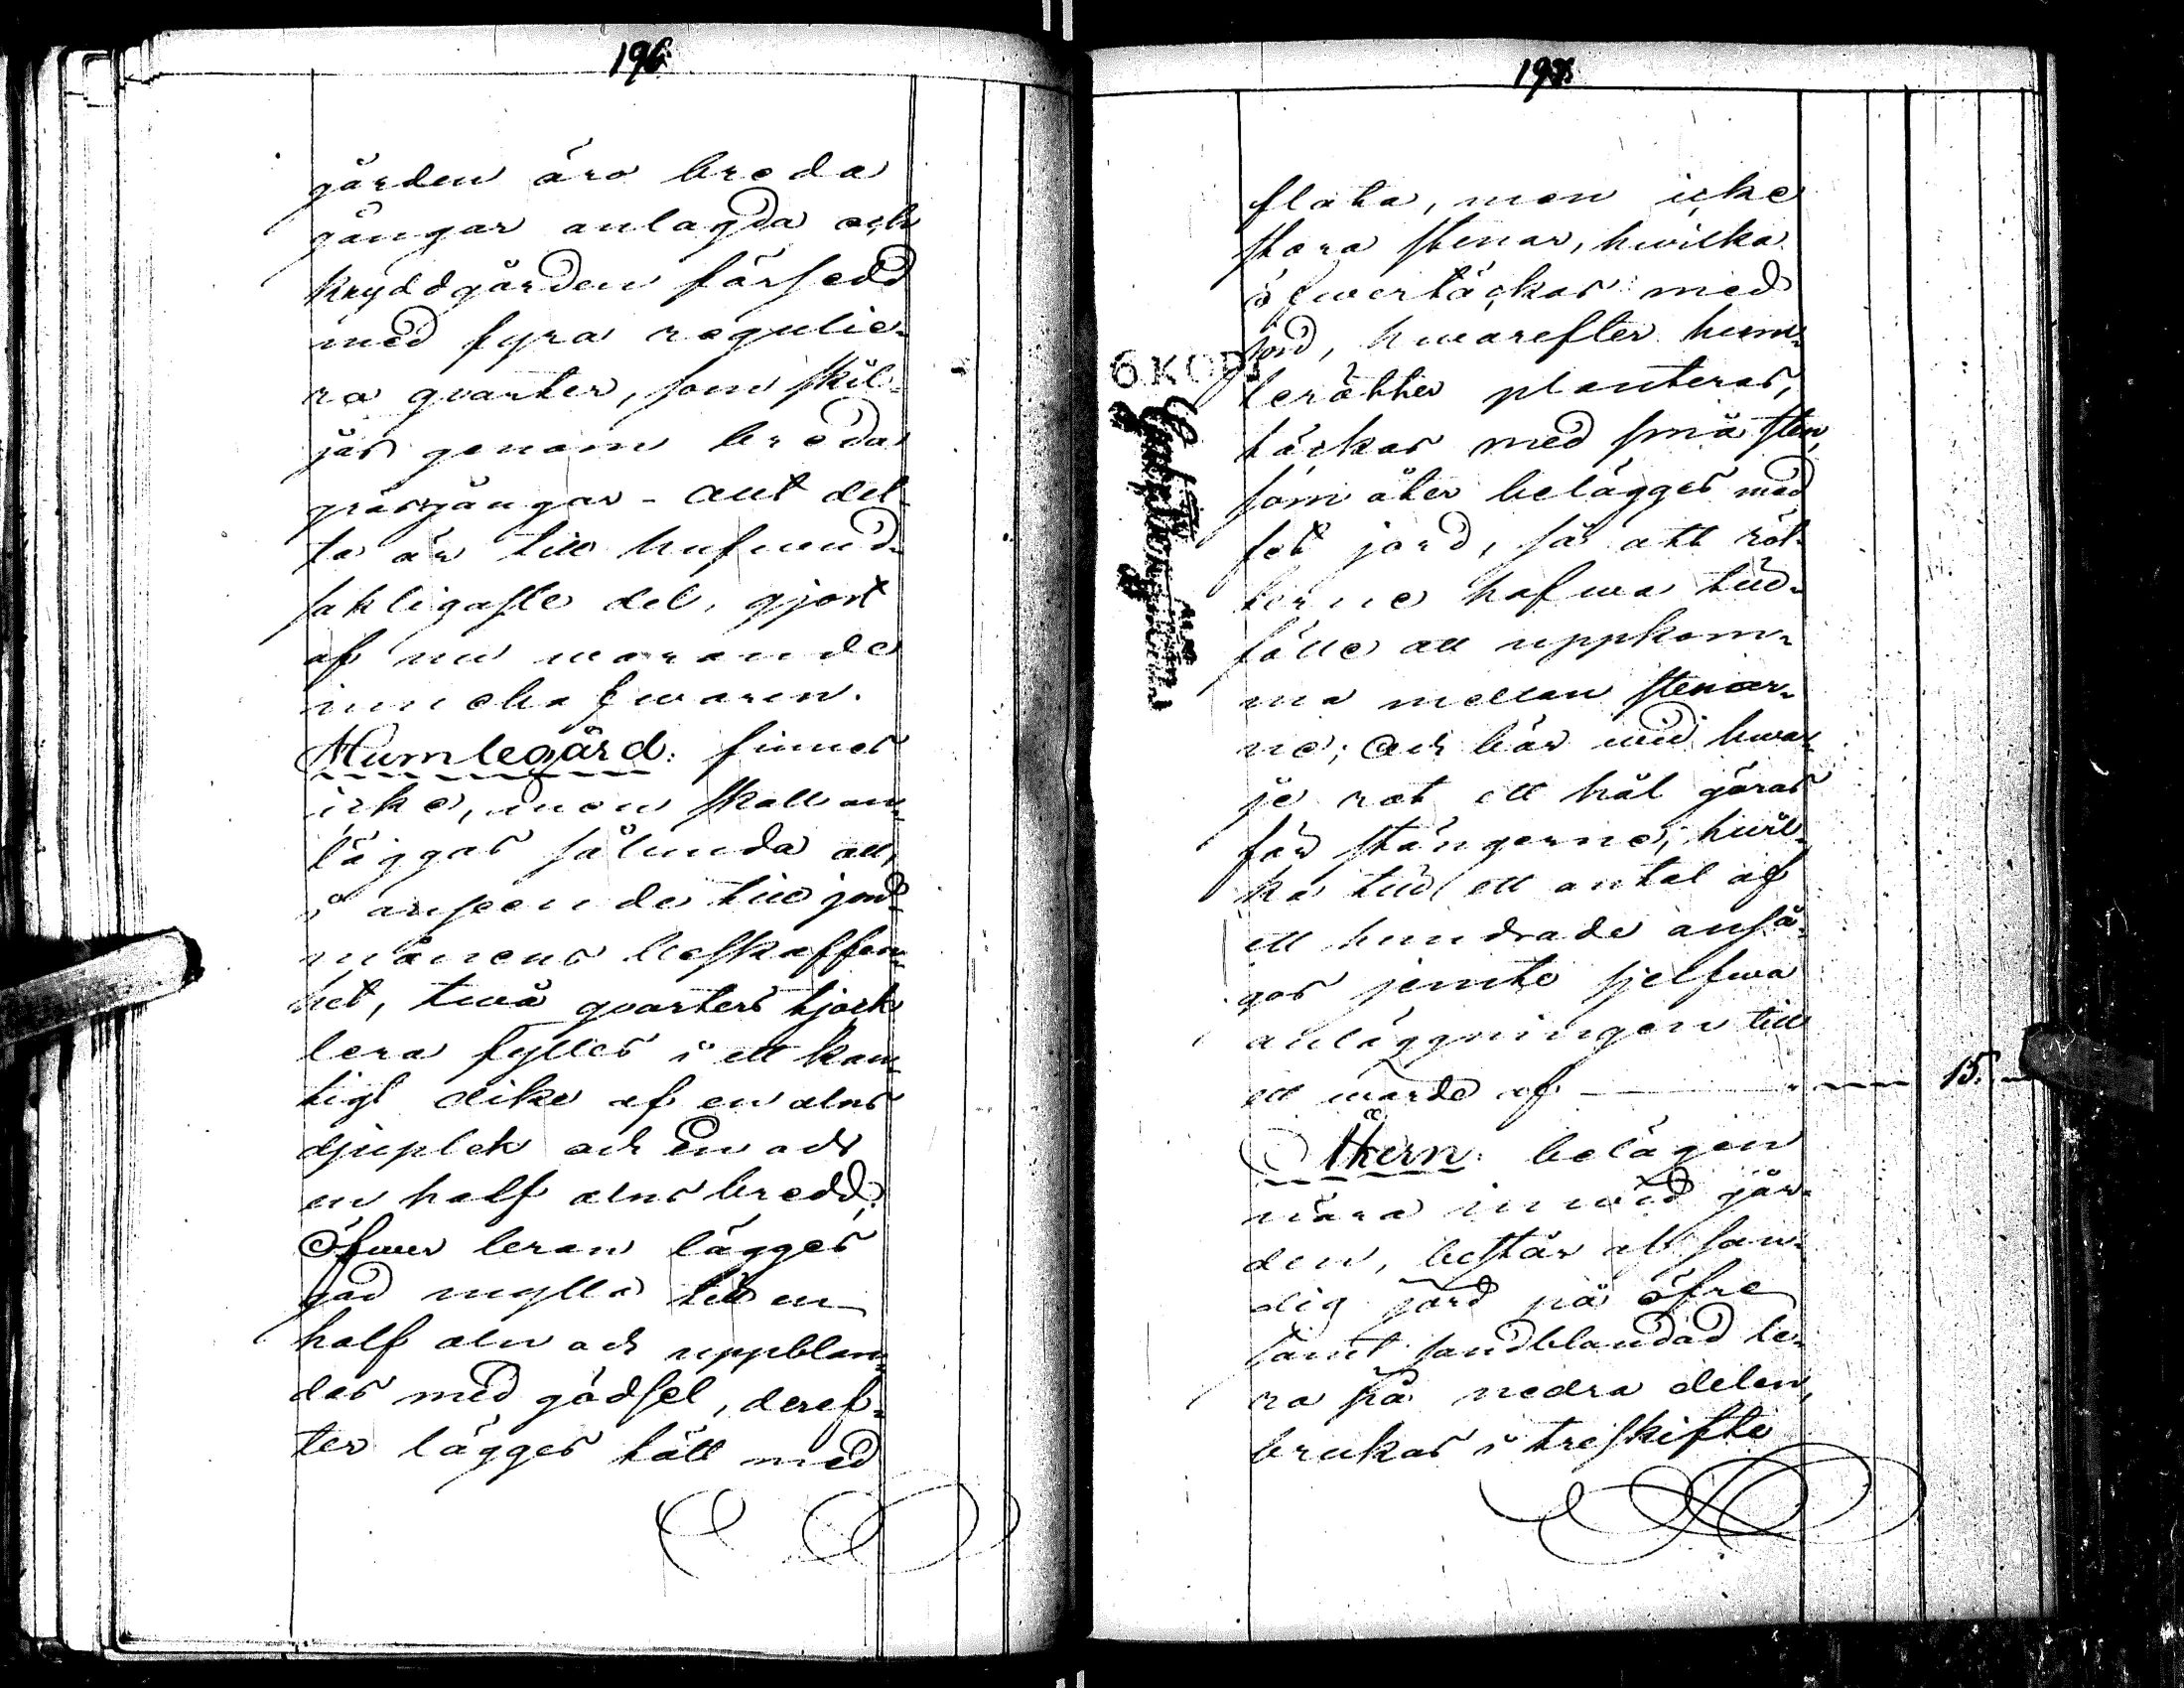 196
gården äro breda
gångar anlagda och
kryddgården försedd
med fyra regulie-
ra qvarter, som skil-
jas genom breda
gräsgångar - allt det-
ta är till hufwud-
sakligaste del, gjort
af nu warande
innehafwaren.
Humlegård: finnes
icke, men skall an-
läggas sålunda att,
i anseende till jord-
månens beskaffen-
het, twå qvarters tjock
lera fylles i ett kan-
tigt dike af en alns
djuplek och en och
en half alns bredd;
Öfwer leran lägges
god mylla till en
half aln och uppblan-
das med gödsel, deref-
ter lägges tätt med
197
flata, men icke
stora stenar, hwilka
öfwertäckas med
jord, hwarefter hum-
lerötter planteras,
täckas med små sten,
som åter belägges med
fet jord, så att röt-
terne hafwa till-
fälle att uppkom-
ma mellan stenar-
ne; och bör wid hwar-
je rot ett hål göras
för stängerne, hwil-
ka till ett antal af
ett hundrade anslå-
gos jemte sjelfwa
anläggningen till
ett wärde af 15.
Åkern: belägen
nära inwid går-
den, består af san-
dig jord på öfre
samt sandblandad le-
ra på nedra delen,
brukas i treskifte
6 KOP